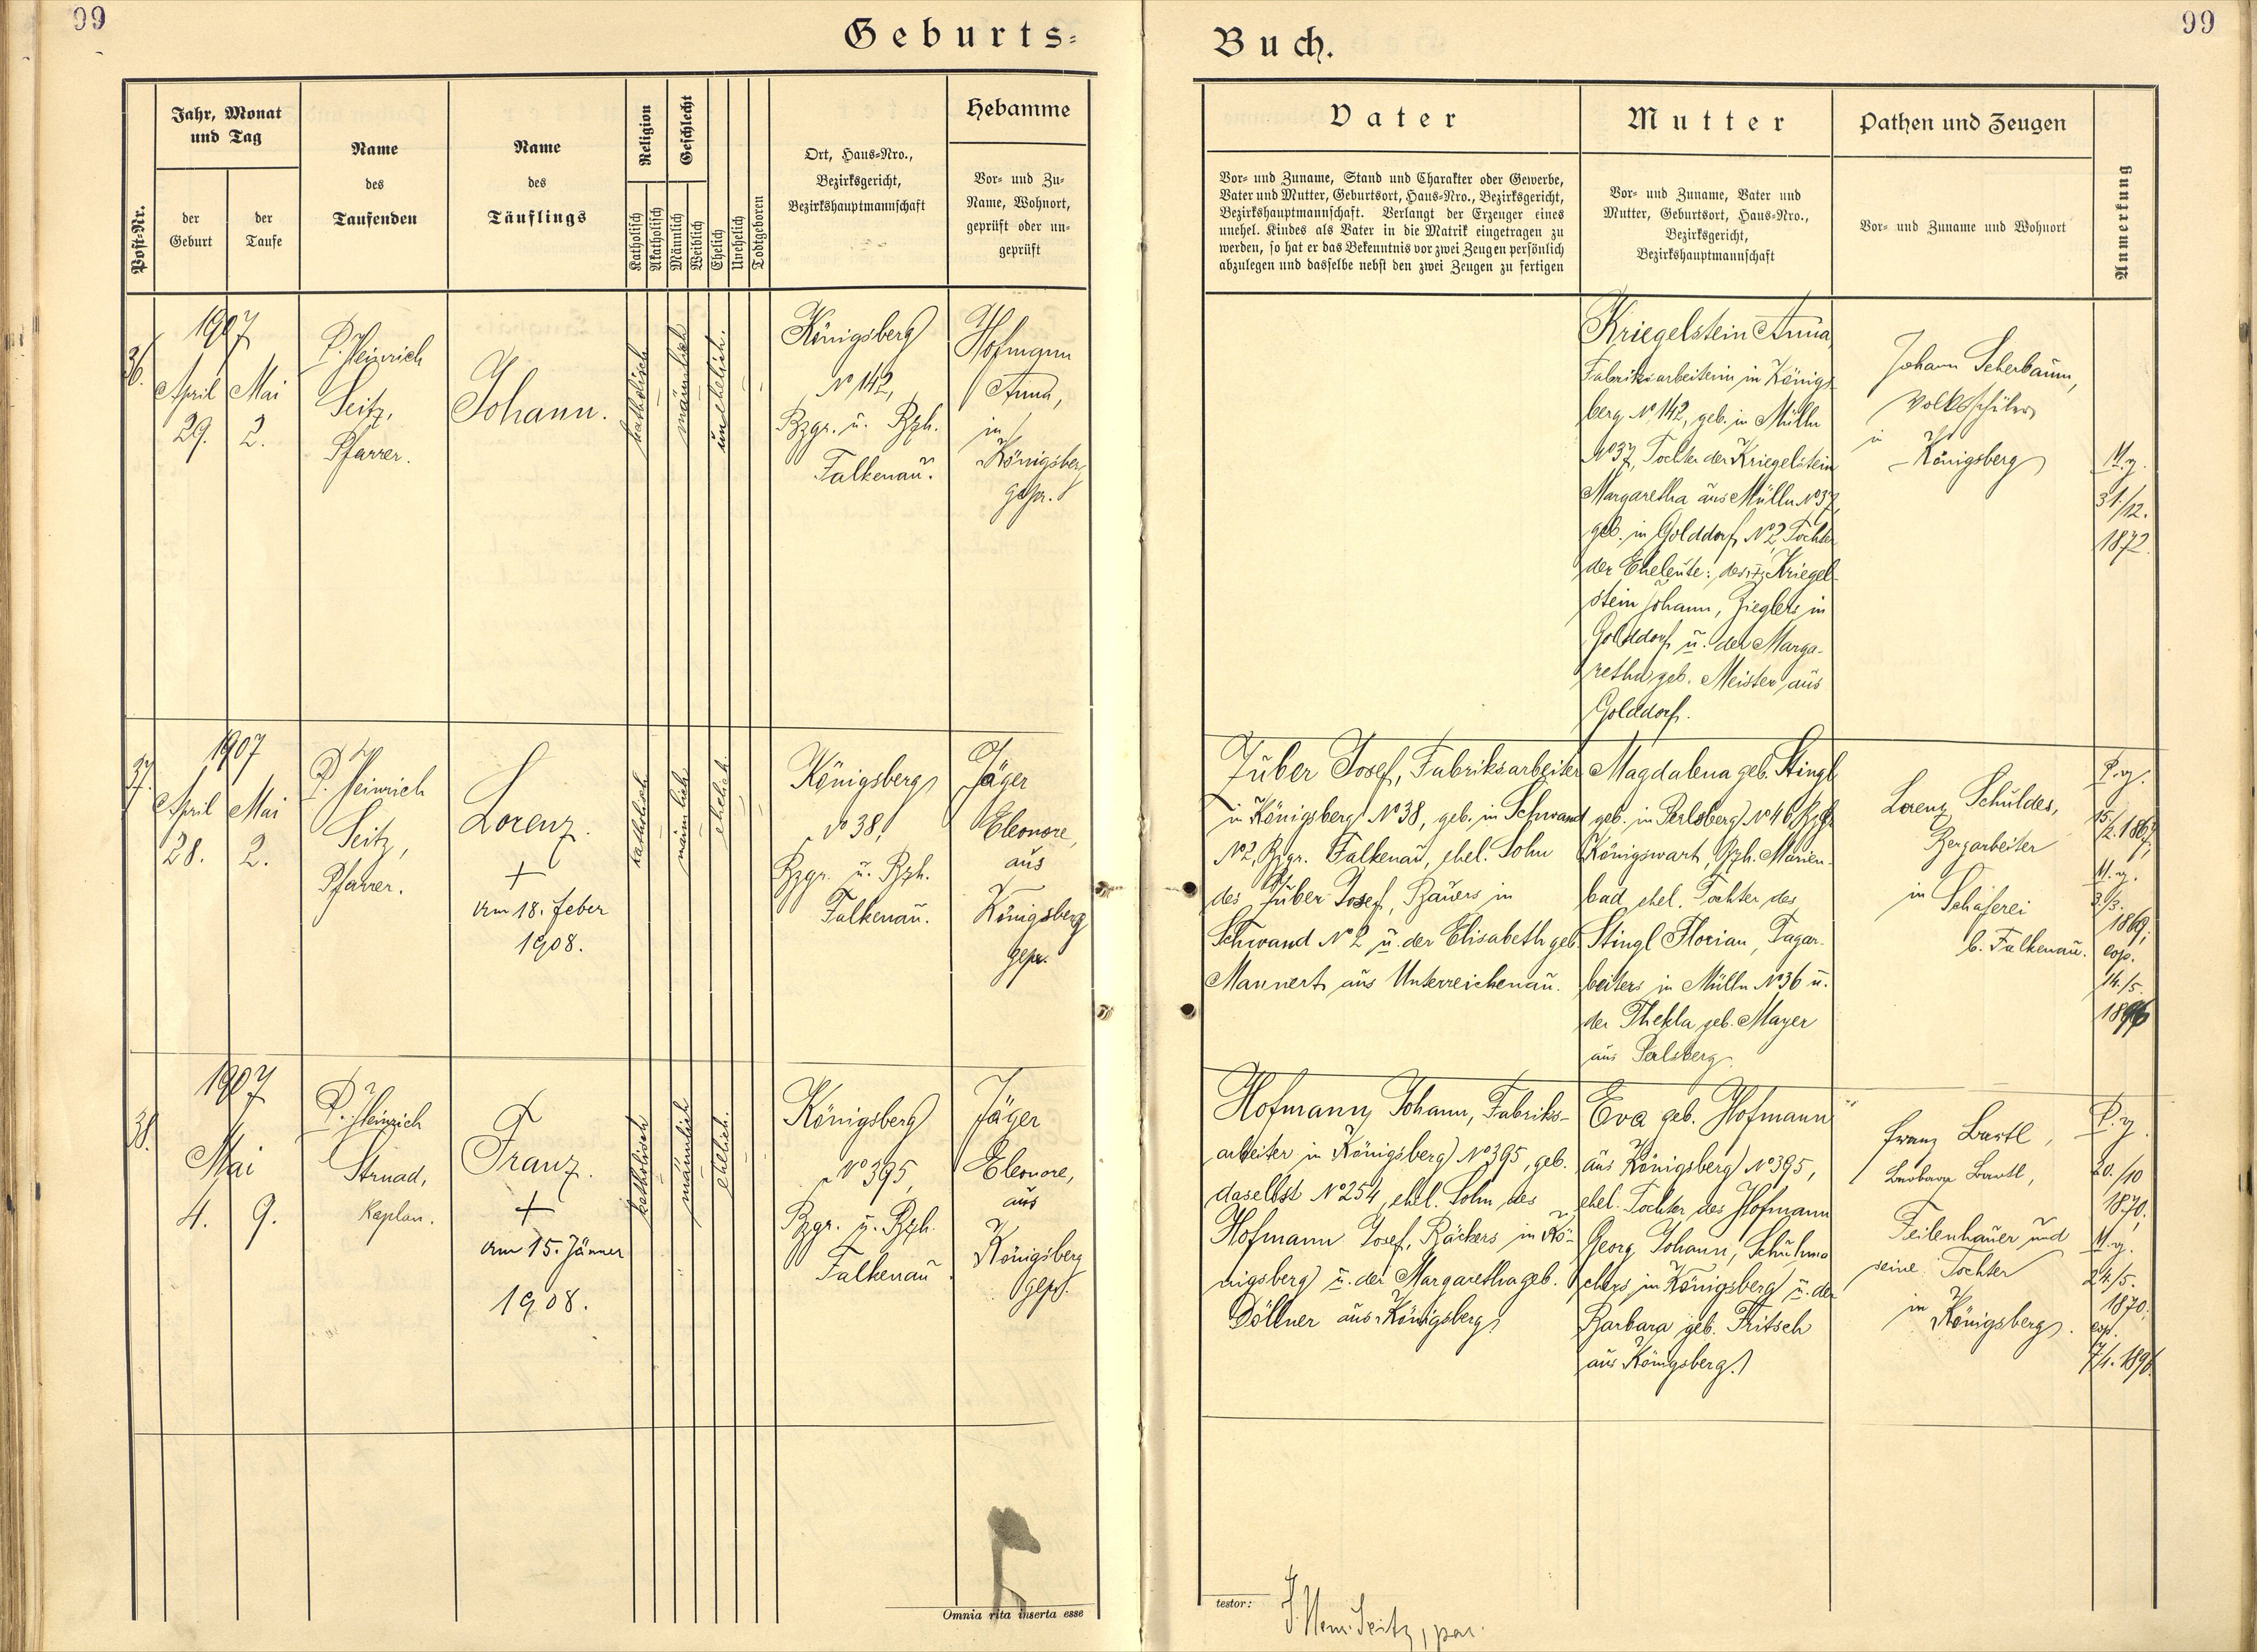 99
Geburts=
Post-Nr.
Jahr, Monat
und Tag
der
Geburt
der
Taufe
Name
des
Taufenden
Name
des
Täuflings
Religion
Katholisch
Akatholisch
Geschlecht
Männlich
Weiblich
Ehelich
Unehelich
Todtgeboren
Ort, Haus=Nro.,
Bezirksgericht,
Bezirkshauptmannschaft
Hebamme
Vor= und Zu=
Name, Wohnort,
geprüft oder un=
geprüft
36.
1907
April
29.
Mai
2.
P. Heinrich
Seitz,
Pfarrer.
Johann.
katholisch
männlich
unehelich.
Königsberg
No 142,
Bzgr. u. Bzh.
Falkenau.
Hofmann
Anna,
in
Königsberg
gepr.
37.
1907
April
28.
Mai
2.
P. Heinrich
Seitz,
Pfarrer.
Lorenz.
+
Am 18. Feber
1908.
katholisch
männlich
ehelich.
Königsberg
No 38,
Bzgr. u. Bzh.
Falkenau.
Jäger
Eleonore,
aus
Königsberg
gepr.
38.
1907
Mai
4.
9.
P. Heinrich
Strnad,
Kaplan.
Franz.
+
Am 15. Jänner
1908.
katholisch
männlich
ehelich.
Königsberg
No 395,
Bzgr. u. Bzh.
Falkenau
Jäger
Eleonore,
aus
Königsberg
gepr.
Omnia rita inserta esse
99
Buch.
Vater
Vor= und Zuname, Stand und Charakter oder Gewerbe,
Vater und Mutter, Geburtsort, Haus=Nro., Bezirksgericht,
Bezirkshauptmannschaft. Verlangt der Erzeuger eines
unehel. Kindes als Vater in die Matrik eingetragen zu
werden, so hat er das Bekenntnis vor zwei Zeugen persönlich
abzulegen und dasselbe nebst den zwei Zeugen zu fertigen
Mutter
Vor= und Zuname, Vater und
Mutter, Geburtsort, Haus=Nro.,
Bezirksgericht,
Bezirkshauptmannschaft
Pathen und Zeugen
Vor= und Zuname und Wohnort
Anmerkung
Kriegelstein Anna,
Fabriksarbeiterin in Königs-
berg No 142, geb. in Mülln
No 37, Tochter der Kriegelstein
Margaretha aus Mülln No 37,
geb. in Golddorf No 2, Tochter
der Eheleute: des Kriegel-
stein Johann, Zieglers in
Golddorf u. der Marga-
retha geb. Meister aus
Golddorf.
Johann Scherbaum,
Volksschüler
in
Königsberg
M. g.
31./12.
1872.
Zuber Josef, Fabriksarbeiter
in Königsberg No 38, geb. in Schwand
No 2, Bzgr. Falkenau, ehel. Sohn
des Zuber Josef, Bauers in
Schwand No 2 u. der Elisabeth geb.
Mannert aus Unterreichenau.
Magdalena geb. Stingl
geb. in Perlsberg No 46, Bzgr.
Königswart, Bzh. Marien-
bad, ehel. Tochter des
Stingl Florian, Tagar-
beiters in Mülln No 36 u.
der Thekla geb. Mayer
aus Perlsberg.
Lorenz Schuldes,
Bergarbeiter
in Schäferei
b. Falkenau.
P. g.
15./
2. 1867,
M. g.
1869;
cop.
14./5.
Hofmann Johann, Fabriks-
arbeiter in Königsberg No 395, geb.
daselbst No 254, ehel. Sohn des
Hofmann Josef, Bäckers in Kö-
nigsberg u. der Margaretha geb.
Döllner aus Königsberg.
Eva geb. Hofmann
aus Königsberg No 395,
ehel. Tochter des Hofmann
Georg Johann, Schuhma-
chers in Königsberg u. der
Barbara geb. Fritsch
aus Königsberg.
Franz Bartl,
Barbara Bartl,
Feilenhauer und
seine Tochter
in Königsberg.
P. g.
20./10
1870,
M. g.
24./5.
1870;
cop.
testor:
P. Hein. Seitz, par.